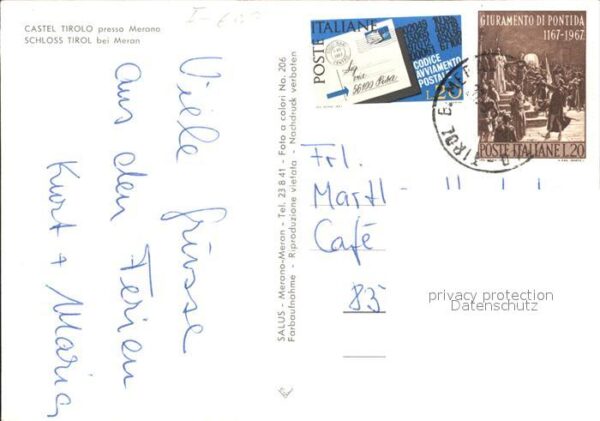 CASTEL TIROLO presso Merano
SCHLOSS TIROL bei Meran
Viele Grüsse
aus den Ferien
Kurt + Maria
SALUS - Merano-Meran - Tel. 23 8 41 - Foto a colori No. 206
Farbaufnahme - Riproduzione vietata - Nachdruck verboten
POSTE ITALIANE
CODICE
AVVIAMENTO
POSTALE
56100 Pisa
L.20
GIURAMENTO DI PONTIDA
1167-1967
POSTE ITALIANE L.20
TIROL
Frl.
Martl
Café
83
privacy protection
Datenschutz